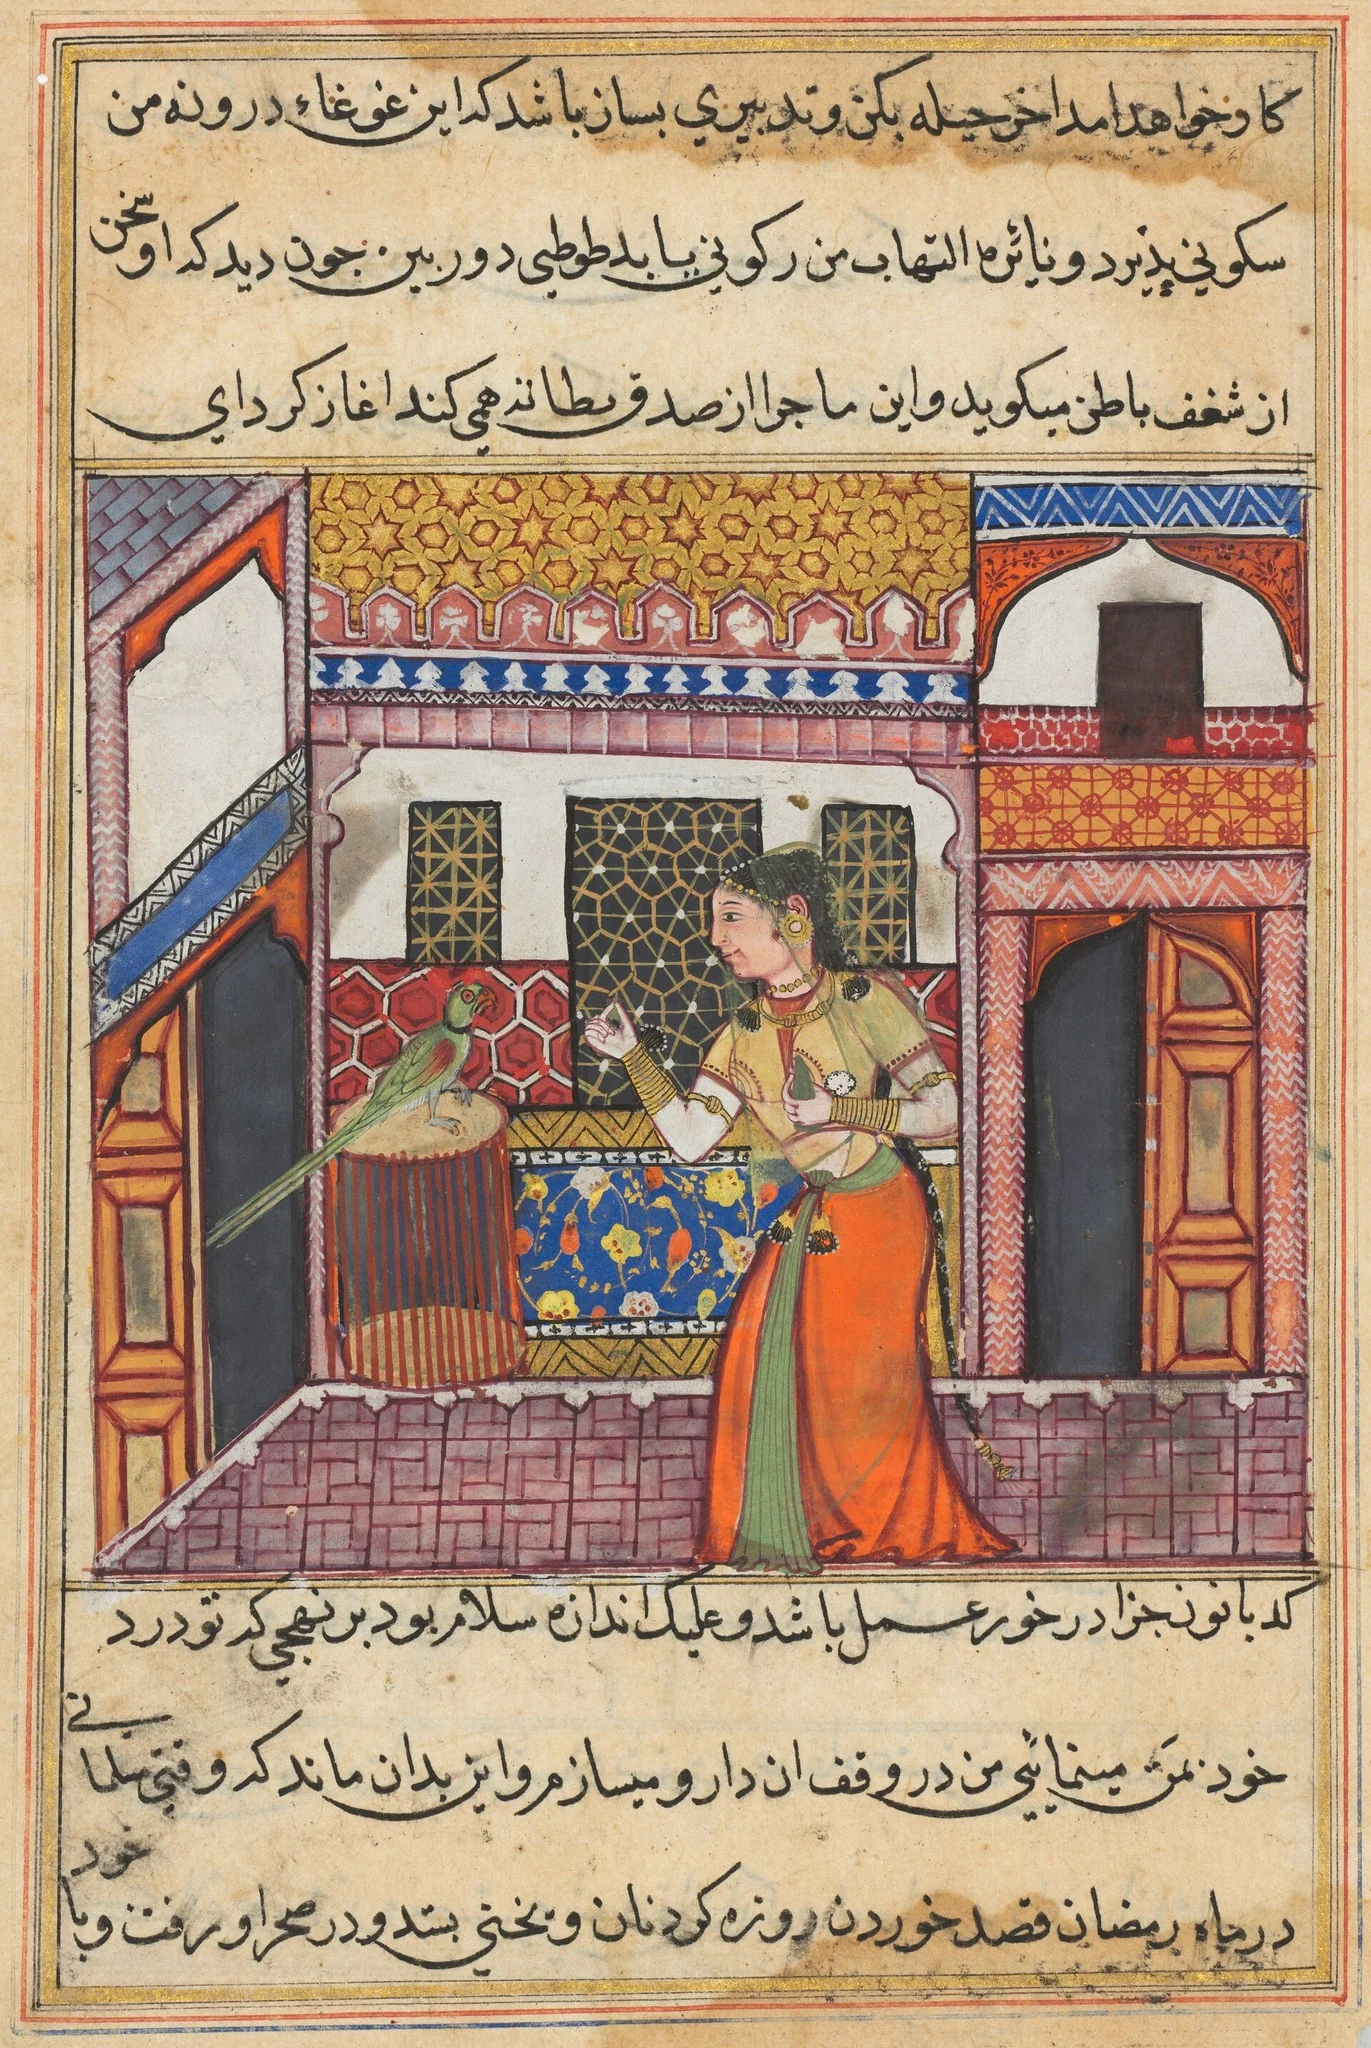 کار خواهد امد اخر حیله بکن و تدبیري بساز باشد که این غوغاء درونه من
سکوني پذیرد و نائره التهاب من رکوني یابد طوطي دوربین چون دید که او سخن
از شغف باطن میکوید و این ماجرا از صدق بطانه همي کند اغاز کرد اي
کدبانو جزا در خور عمل باشد و علیک اندازه سلام بود بر نهجي که تو درد
خود بمن مینمائي من در وقف ان دارو میسازم و این بدان ماند که وقتي
در ماه رمضان قصد خوردن روزه کرد نان و یختي بستد و در صحرا و رفت و با خود